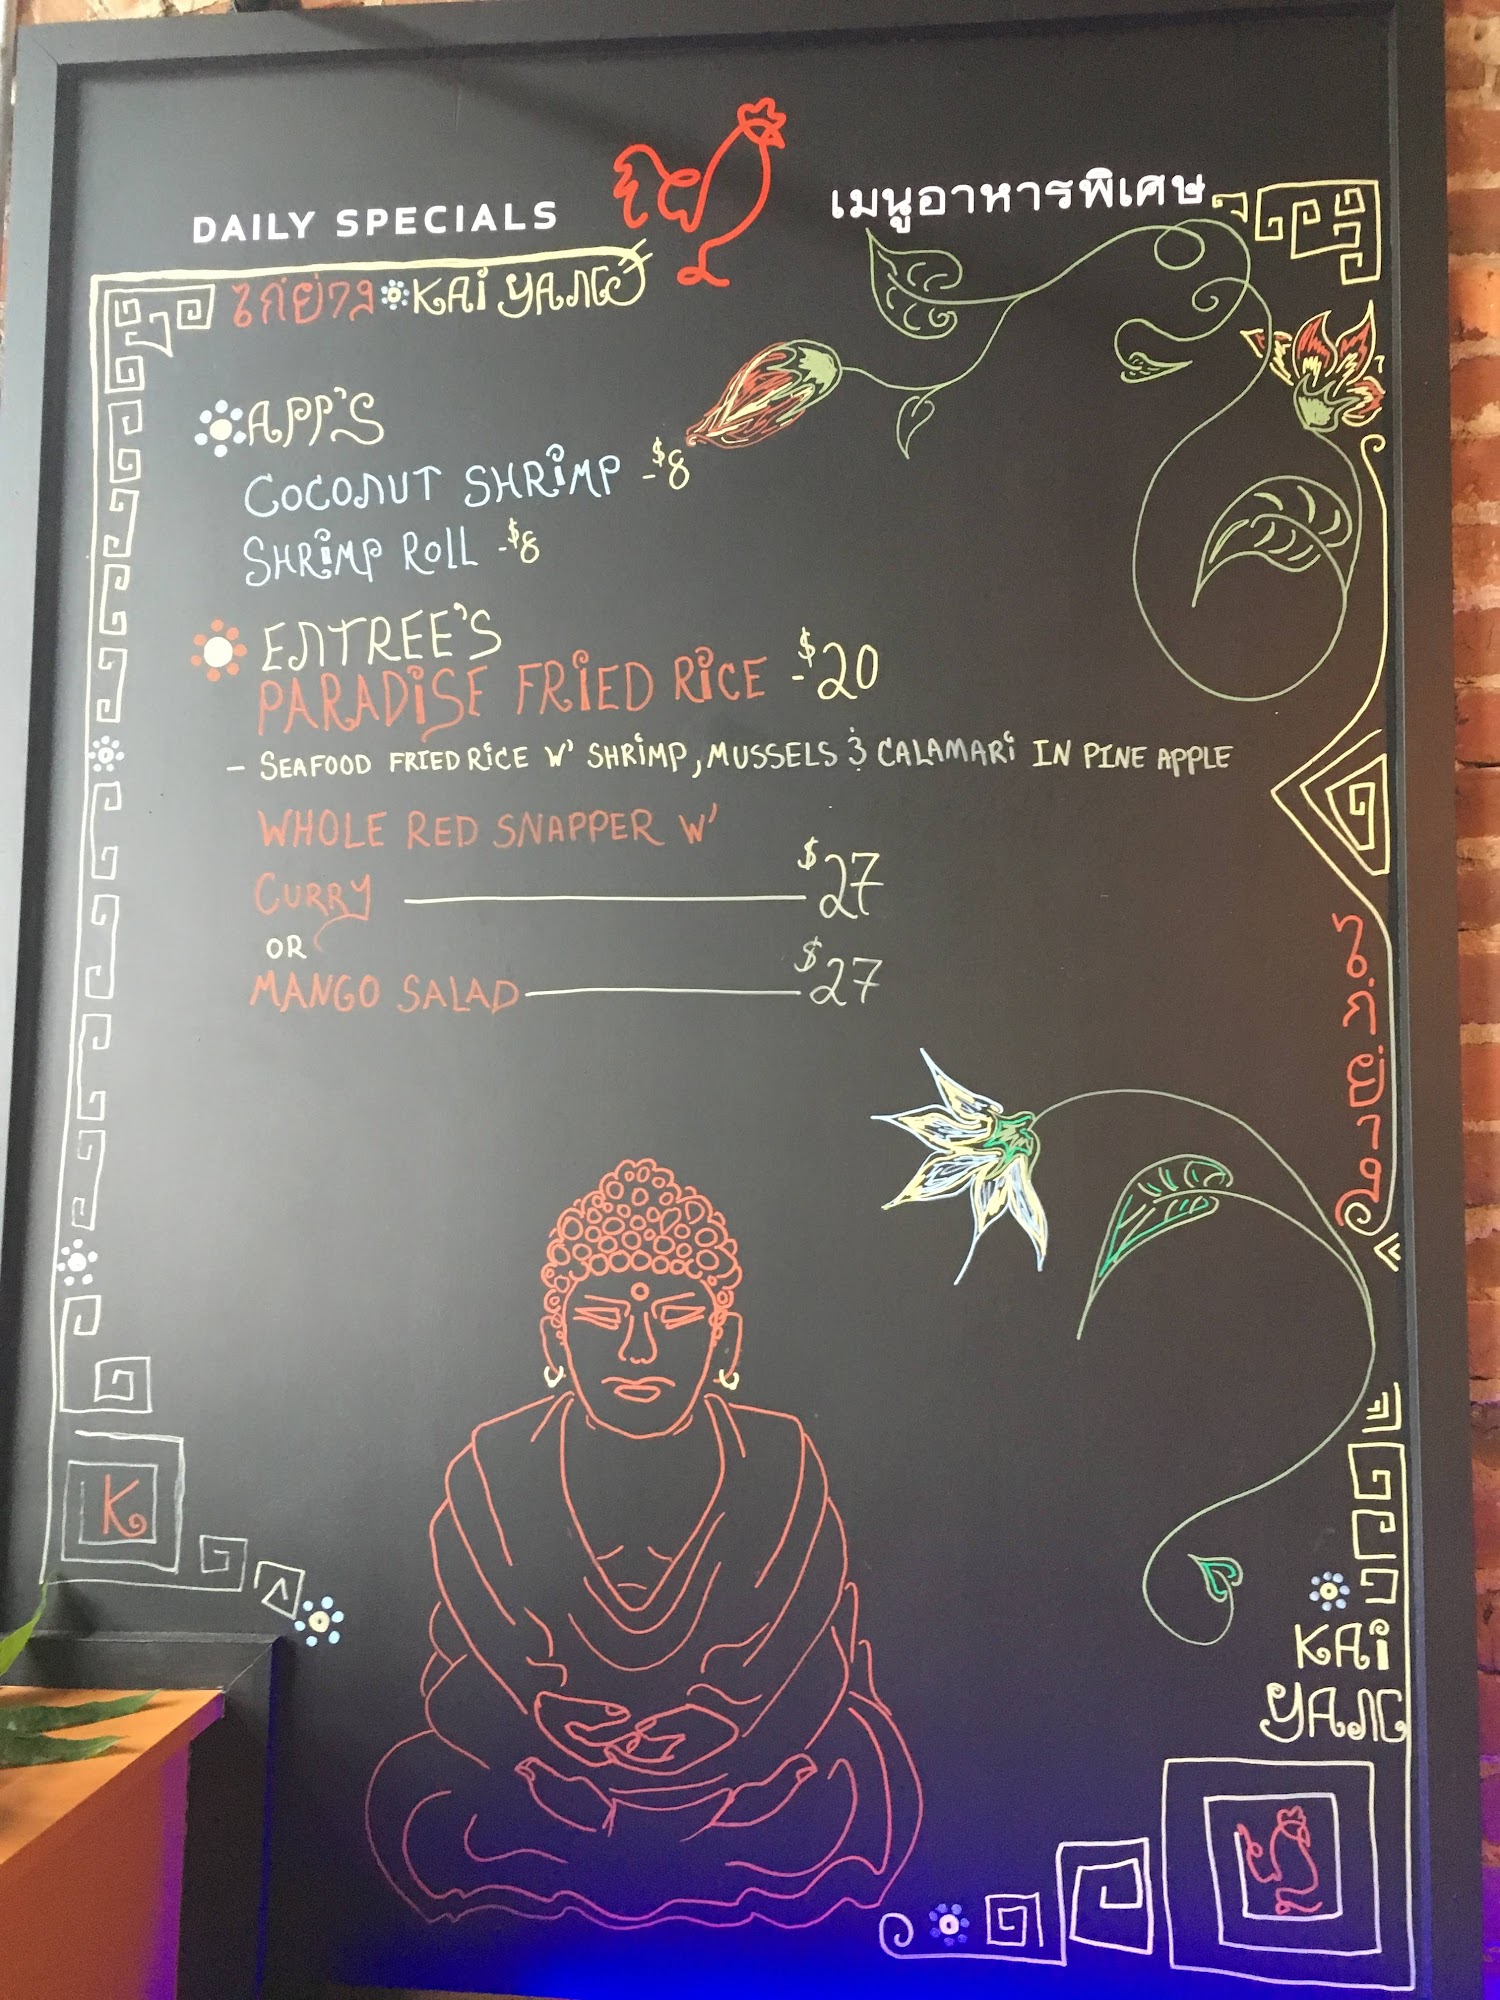 DAILY SPECIALS เมนูอาหารพิเศษ
ไก่ย่าง KAI YANG
APP'S
COCONUT SHRIMP -$8
SHRIMP ROLL -$8
ENTREE'S
PARADISE FRIED RICE -$20
- SEAFOOD FRIED RICE W' SHRIMP, MUSSELS & CALAMARI IN PINE APPLE
WHOLE RED SNAPPER W'
CURRY $27
OR
MANGO SALAD $27
ไก่ย่าง
K
KAI
YANG